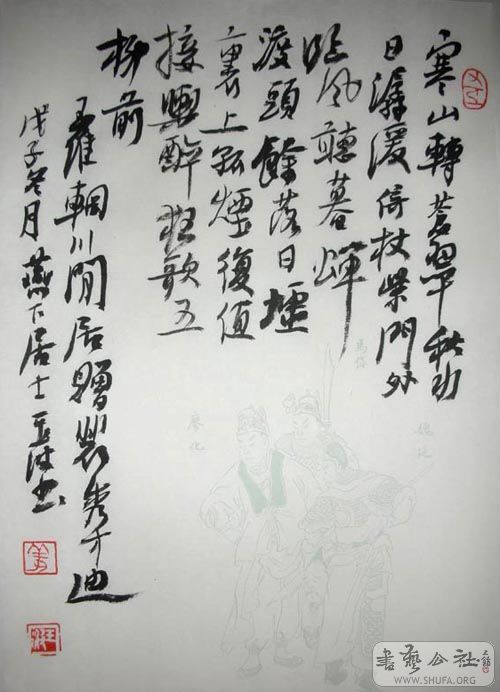 寒山轉蒼翠秋水
日潺湲倚杖柴門外
臨風聽暮蟬
渡頭餘落日墟
裏上孤煙復值
接輿醉狂歌五
柳前
王維輞川閒居贈裴秀才迪
戊子冬月燕下居士书
馬岱
廖化
魏延
書藝公社
WWW.SHUFA.ORG